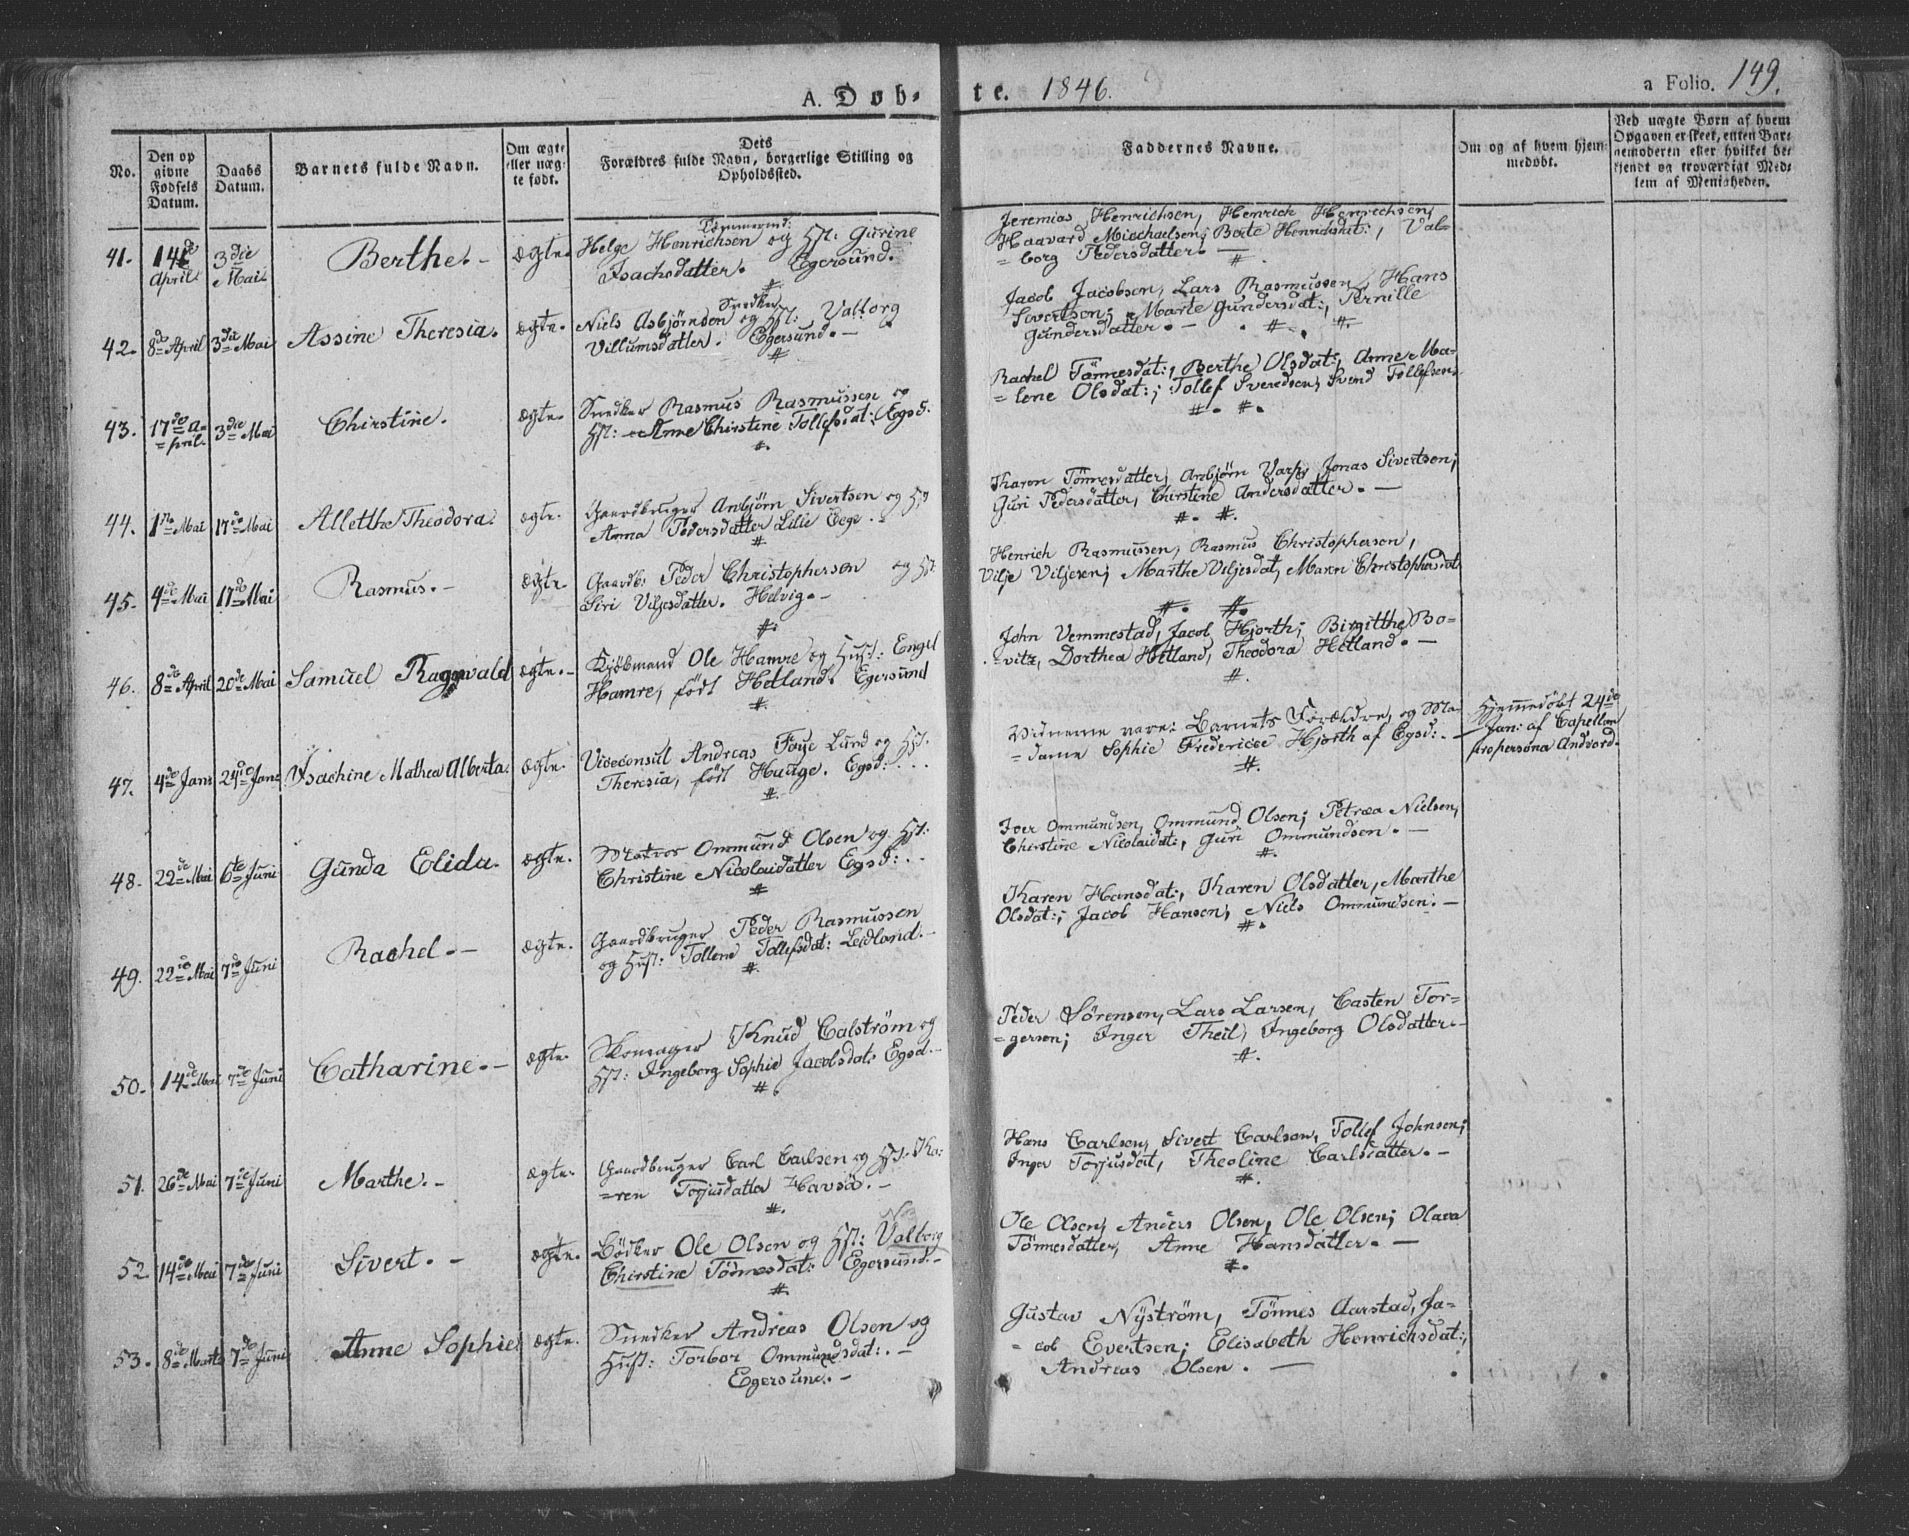 A. Døb-
te. 1846.
a Folio. 149.
No.
Den op
givne
Fødsels
Datum.
Daabs
Datum.
Barnets fulde Navn.
Om ægte
eller uæg-
te født.
Dets
Forældres fulde Navn, borgerlige Stilling og
Opholdssted.
Faddernes Navne.
Om og af hvem hjem-
medøbt.
Ved uægte Børn af hvem
Opgaven er skeet, enten Bar-
nemoderen eller hvilket be-
kjendt og troværdigt Med-
lem af Menigheden.
41. 14de April 3die Mai Berthe.- ægte.
Tømmermd:
Helge Henrichsen og Hst: Gurine
Isachsdatter. Egersund.
Jeremias Henrichsen, Henrich Henrechsen,
Haavard Miechaelsen; Berte Henrichsdat:, Val-
=borg Pedersdatter.-
42. 8de April 3die Mai Assine Theresia. ægte.
Snedker
Niels Asbjörnsen og Hst: Valborg
Villumsdatter. Egersund.-
Jacob Jacobsen, Lars Rasmussen, Hans
Sivertsen; Marte Gundersdat:, Pernille
Gundersdatter.-
43. 17de A-
=pril. 3die Mai Chirstine. ægte.
Snedker Rasmus Rasmussen og
Hst: Anne Chirstine Tollefsdat: Egsd.
Rachel Tönnesdat:, Berthe Olsdat:, Anne Ma-
=lene Olsdat:; Tollef Svendsen, Svend Tollefsen.
44. 1ste Mai 17de Mai Allethe Theodora. ægte.
Gaardbruger Anbjörn Sivertsen og Hst
Anna Pedersdatter Lille Eege.-
Tharon Tönnesdatter, Anbjörn Varp, Jonas Sivertsen;
Guri Pedersdatter, Chirstine Andersdatter.-
45. 4de Mai 17de Mai Rasmus.- ægte.
Gaardb: Peder Christophersen og Hst:
Siri Viljesdatter. Helvig.-
Henrich Rasmussen, Rasmus Christophersen,
Vilje Viljesen; Marthe Viljesdat, Maren Christophersdat
46. 8de April 20de Mai Samuel Ragnvald ægte.-
Kjöbmand Ole Hamre og Hust: Engel
Hamre, född Hetland. Egersund
John Vemmestad, Jacob Hjorth; Birgitthe Bo-
=vitz, Dorthea Hetland, Theodora Hetland.-
47. 4de Jan: 24de Jan: Isachine Mathea Alberta. ægte.
Viceconsul Andreas Faye Lund og Hst:
Theresia, född Hauge. Egsd:
Vidnerne vare: Barnets Forældre, og Ma-
=dame Sophie Fredericke Hjorth af Egsd:.-
Hjemmedöbt 24de
Jan: af Capellan
propersona Andvord.
48. 22de Mai 6te Juni Gunda Elida. ægte.
Matros Ommund Olsen og Hst:
Christine Nicolaidatter Egsd:.
Iver Ommundsen, Ommund Olsen; Petræa Nielsen,
Chirstine Nicolaidat:, Guri Ommundsen.-
49. 22de Mai 7de Juni Rachel.- ægte.
Gaardbruger Peder Rasmussen
og Hust: Tollene Tollefsdat: Leidland.-
Karen Hansdat:, Karen Olsdatter, Marthe
Olsdat:; Jacob Hansen, Niels Ommundsen.-
50. 14de Mai 7de Juni Catharine.- ægte.
Skomager Knud Calström og
Hst: Ingeborg Sophie Jacobsdat: Egsd.-
Peder Sörensen, Lars Larsen, Casten Tor-
=gersen; Inger Theil, Ingeborg Olsdatter.-
51. 26de Mai 7de Juni Marthe.- ægte.
Gaardbruger Carl Carlsen og Hst: Ka-
=ren Torjusdatter Havsö.-
Hans Carlsen, Sivert Carlson, Tollef Johnsen;
Inger Torjusdat, Theoline Carlsdatter.-
52 14de Mai 7de Juni Sivert.- ægte.
Bödker Ole Olsen og Hst: Valborg
Chirstine Tönnesdat: Egersund.-
Ole Olsen, Anders Olsen, Ole Olsen; Olava
Tönnesdatter, Anne Hansdatter.-
53. 8de Marts 7de Juni Anne Sophie ægte.
Snedker Andreas Olsen og
Hust: Torbor Ommundsdat:.-
Egersund.-
Gustav Nyström, Tönnes Aarstad, Ja-
=cob Evertsen; Elisabeth Henrichsdat:,
Andreas Olsen.-